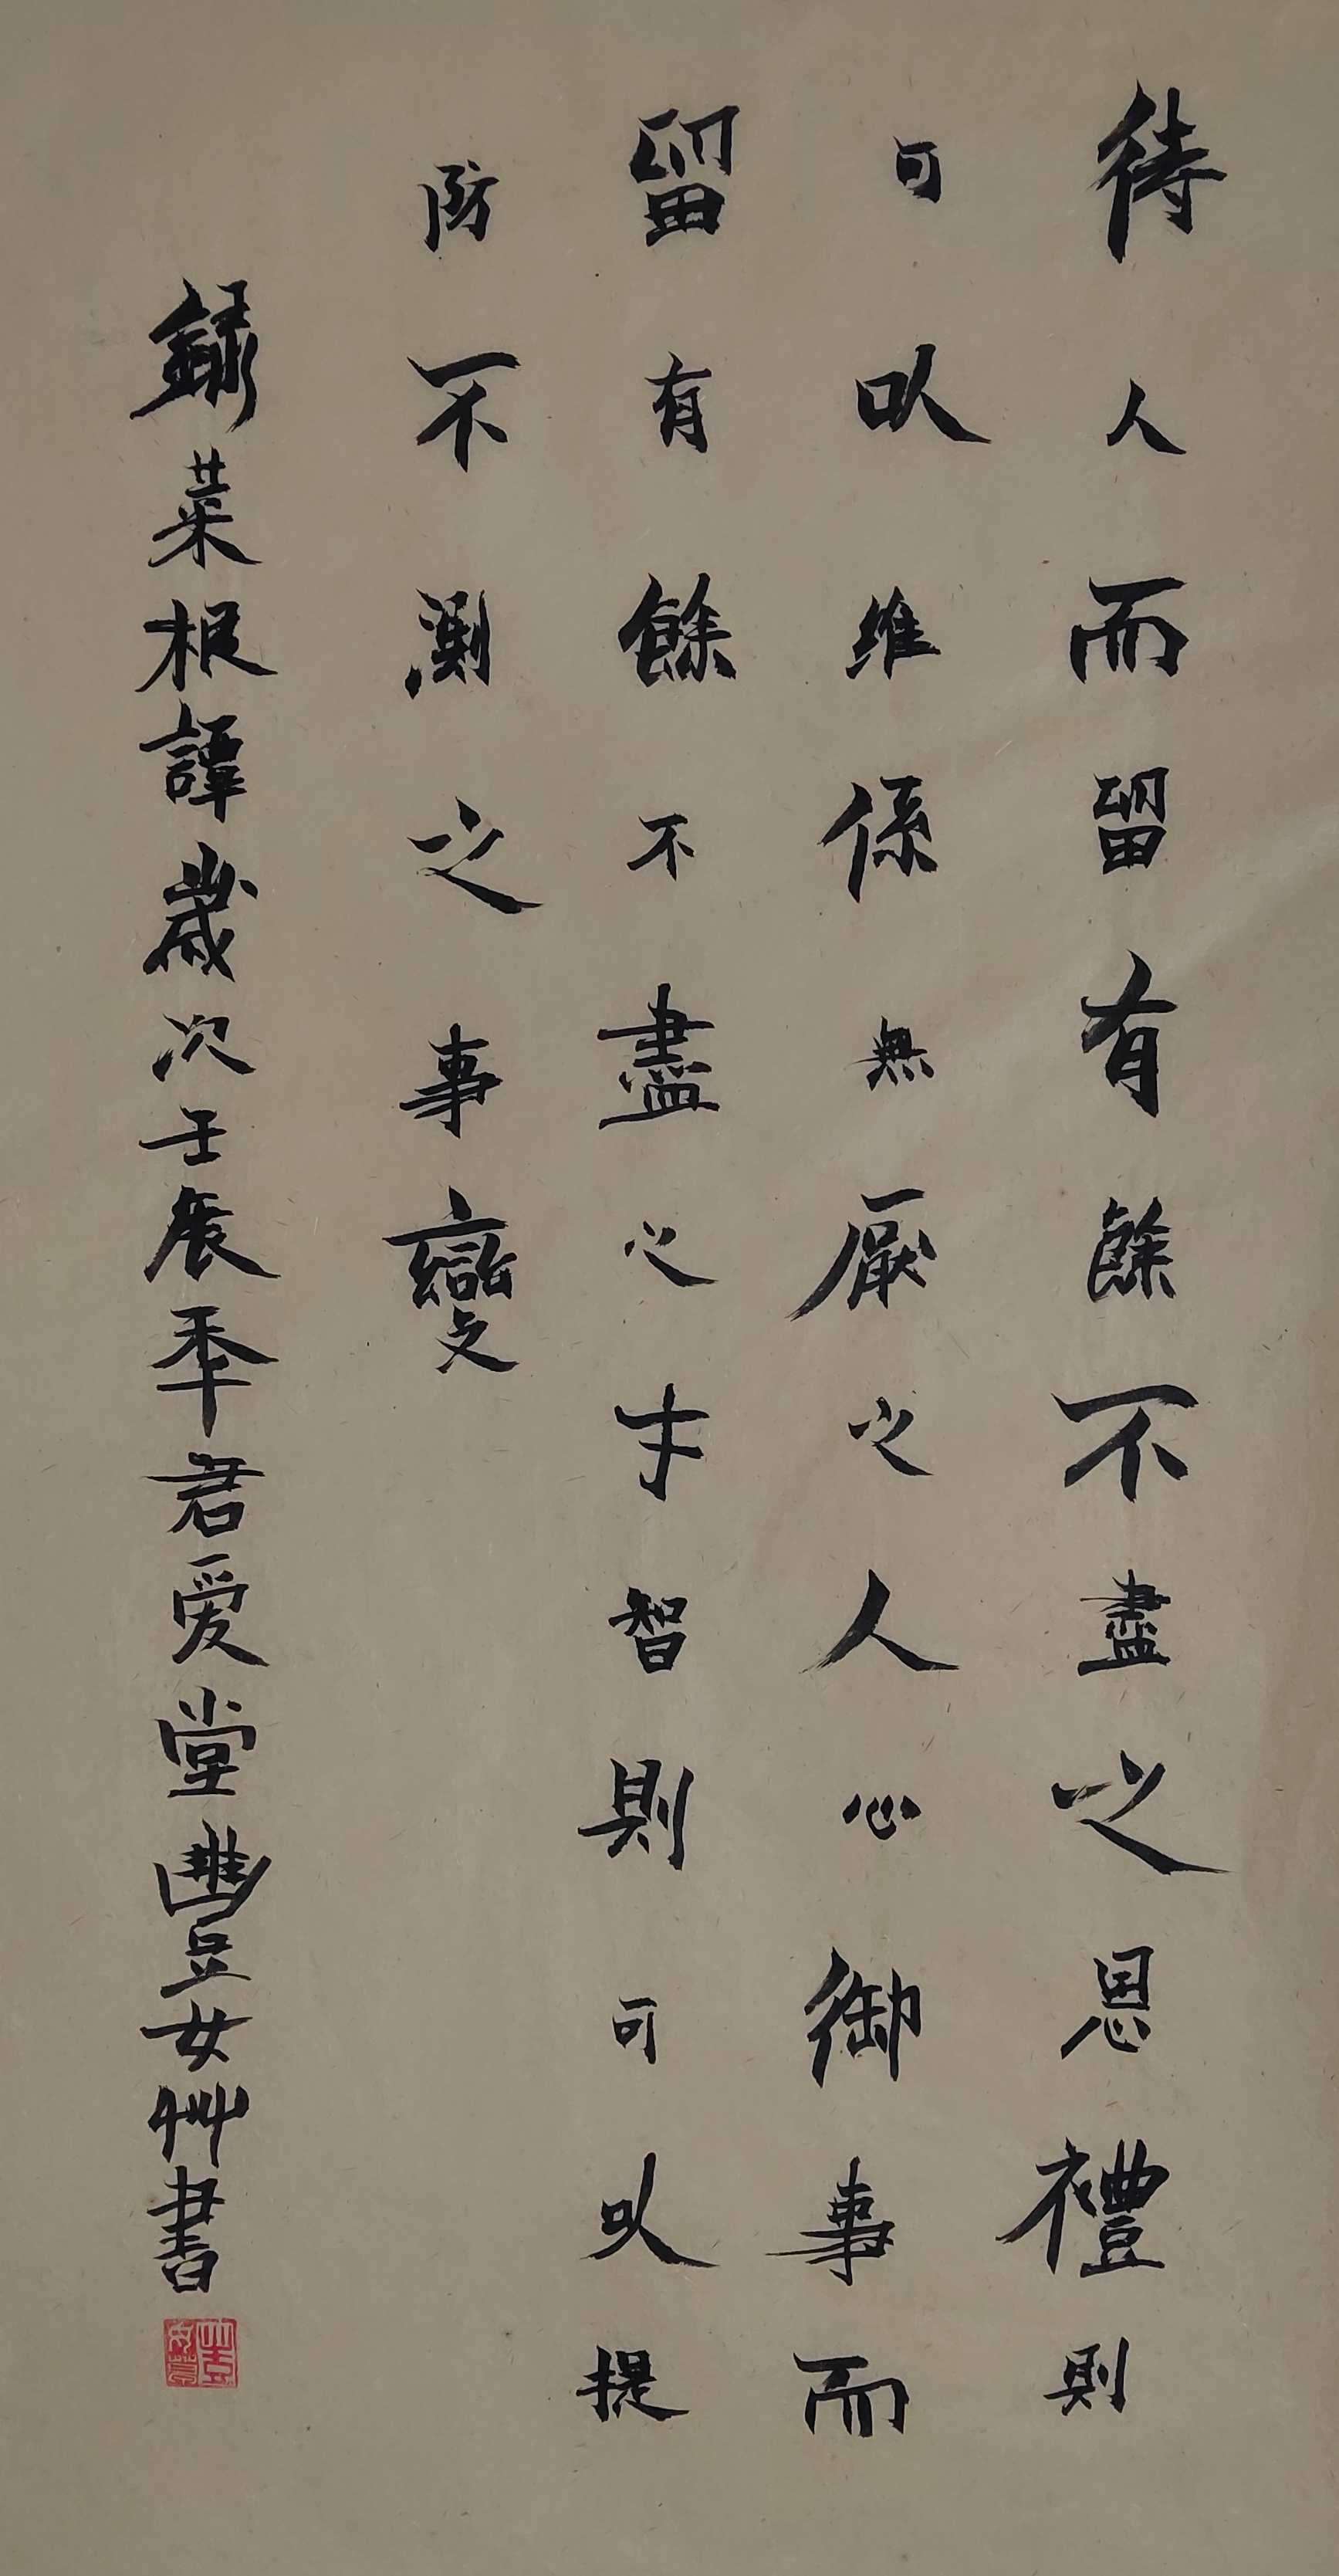 待人而留有餘不盡之恩禮則
可以維係無厭之人心御事而
留有餘不盡之才智則可以提
防不測之事變
錄菜根譚歲次壬辰季君爱堂豐女艸書